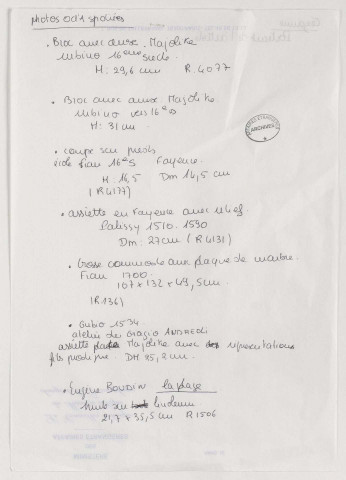 photos od4 spoliées
• Broc avec anse, Majolike
Urbino 16eme siecle
H: 29,6 cm R.4077
• Broc avec anse Majolike
Urbino vers 16e s
H: 31 cm
ARCHIVES
• coupe sur pieds
16e S Fayence.
H. 16,5 Dm 14,5 cm
(R4177)
• assiette en Fayence avec relief.
Palissy 1510. 1590
Dm: 27cm (R4131)
• Grosse commode aux plaque de marbre.
1700
107 x 132 x 49,5cm.
(R136)
• Gubio 1534.
atelier de Giorgio ANDREOLI
assiette plate Majolike avec représentations
fils prodigue. DM 25,2 cm.
• Eugène BOUDIN la plage
huile sur
21,7 x 35,5 cm R 1506